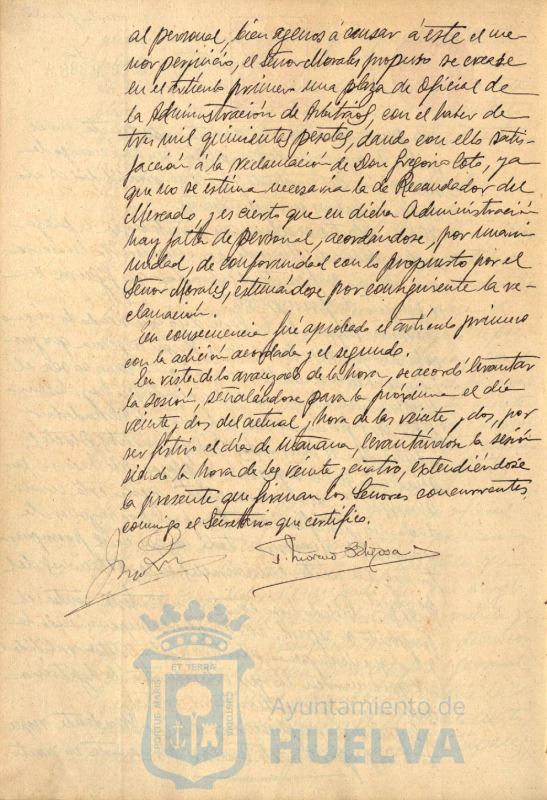 al personal, bien agenos á causar á este el me-
nor perjuicio, el Señor Morales propuso se crease
en el artículo primero una plaza de Oficial de
la Administración de Arbitrios, con el haber de
tres mil quinientas pesetas, dando con ello satis-
facción á la reclamación de Don Gregorio Coto, ya
que no se estima necesaria la de Recaudador del
Mercado, y es cierto que en dicha Administración
hay falta de personal, acordándose, por unani-
midad, de conformidad con lo propuesto por el
Señor Morales, estimándose por consiguiente la re-
clamación.
En consecuencia fué aprobado el artículo primero
con la adición acordada y el segundo.
En vista de lo avanzado de la hora, se acordó levantar
la sesión, señalándose para la próxima el día
veinte y dos del actual y hora de las veinte y dos, por
ser festivo el día de mañana, levantándose la sesión
siendo la hora de las veinte y cuatro, extendiéndose
la presente que firman los Señores concurrentes
conmigo el Secretario que certifico.
ET TERRÆ
PORTUS MARIS
CUSTODIA
Ayuntamiento de
HUELVA